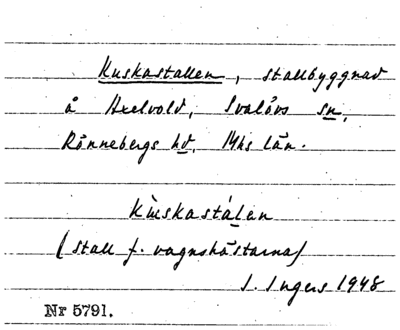 Kuskastallen, stallbyggnad
å Axelvold, Svalövs sn,
Rönnebergs hd, Mhs län.
Kùskastálen
(stall f. vagnshästarna)
I. Ingers 1948
Nr 5791.